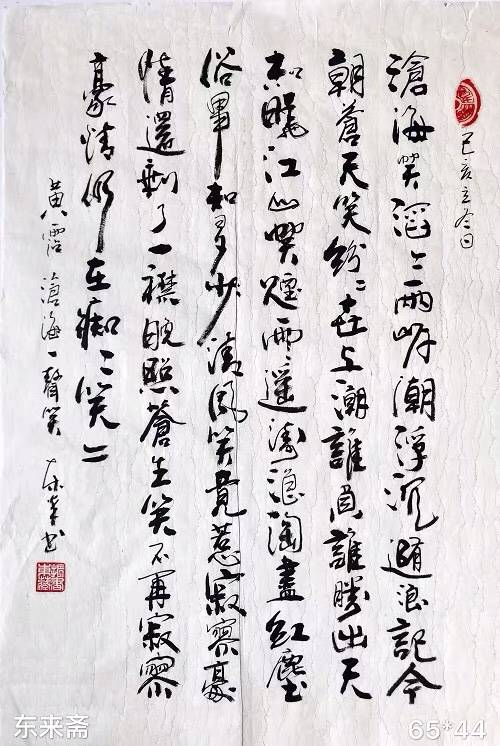 己亥立冬日
滄海笑滔々兩岸潮浮沉隨浪記今
朝蒼天笑紛々世上潮誰負誰勝出天
知曉江山笑煙雨遙濤浪淘盡紅塵
俗事知多少清風笑竟惹寂寥豪
情還剩了一襟晚照蒼生笑不再寂寥
豪情仍在痴々笑々
黄霑滄海一聲笑 东来书
东来斋
65*44